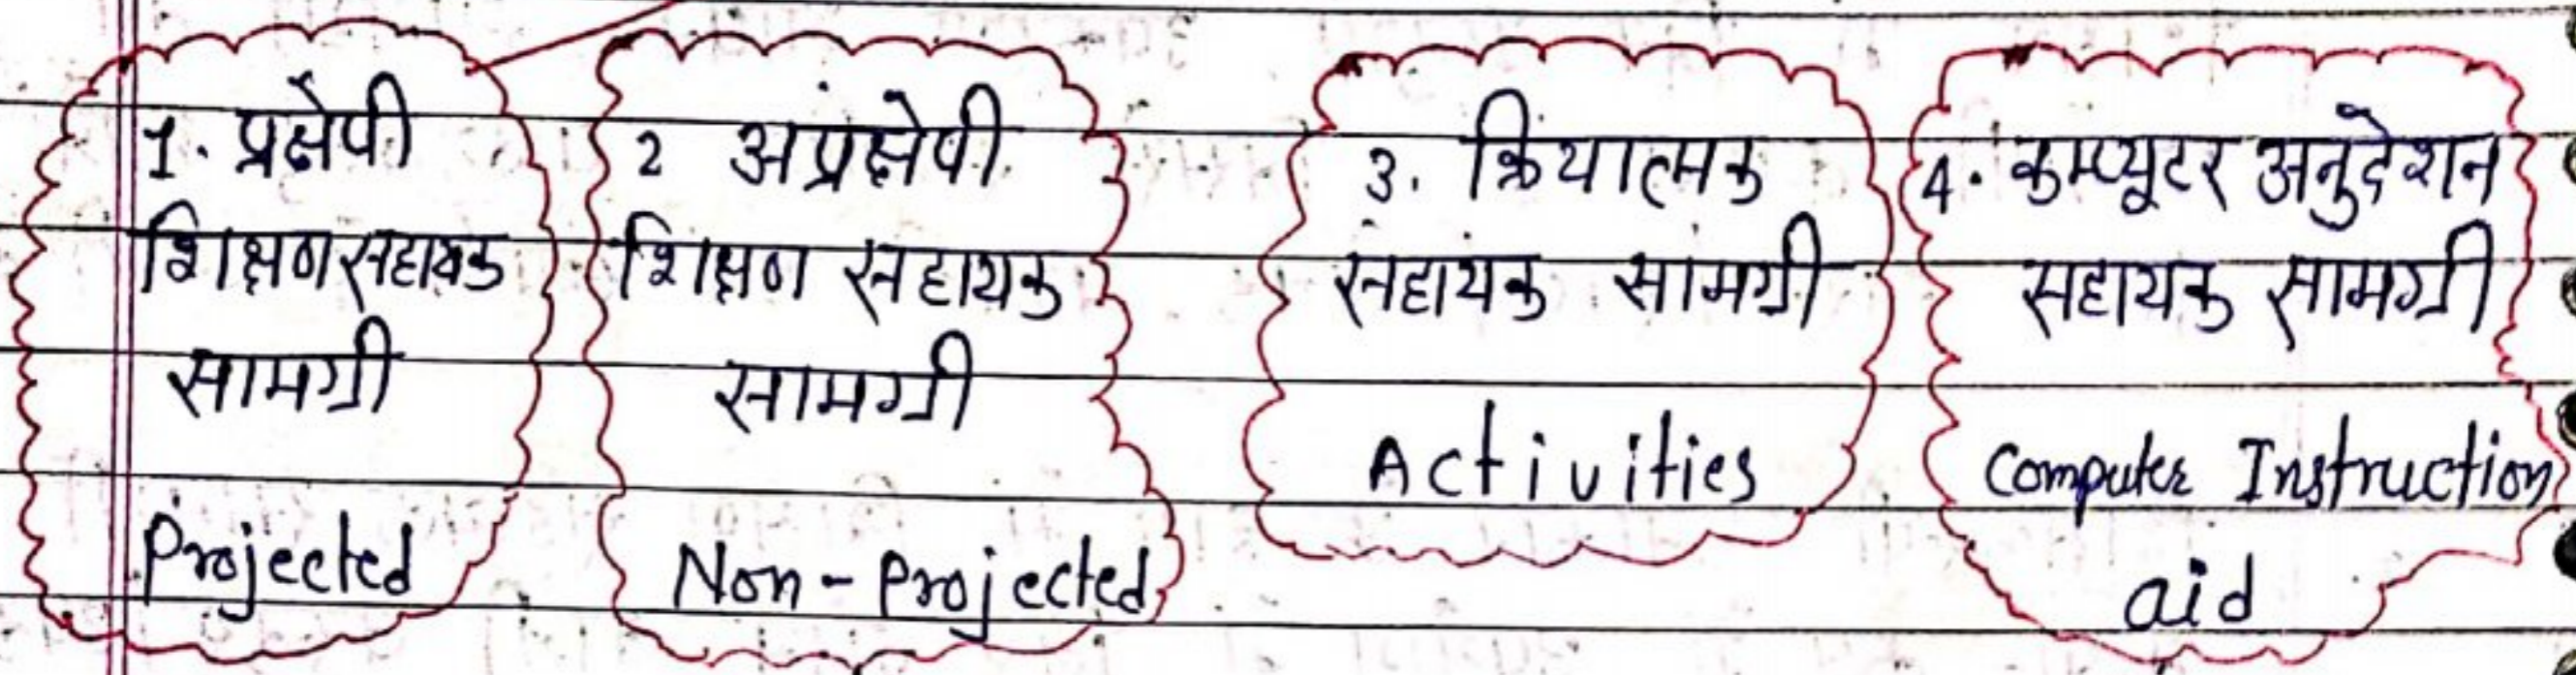 1. प्रक्षेपी
शिक्षण सहायक
सामग्री
Projected
2 अप्रक्षेपी
शिक्षण सहायक
सामग्री
Non-Projected
3. क्रियात्मक
सहायक सामग्री
Activities
4. कम्प्यूटर अनुदेशन
सहायक सामग्री
Computer Instruction
aid